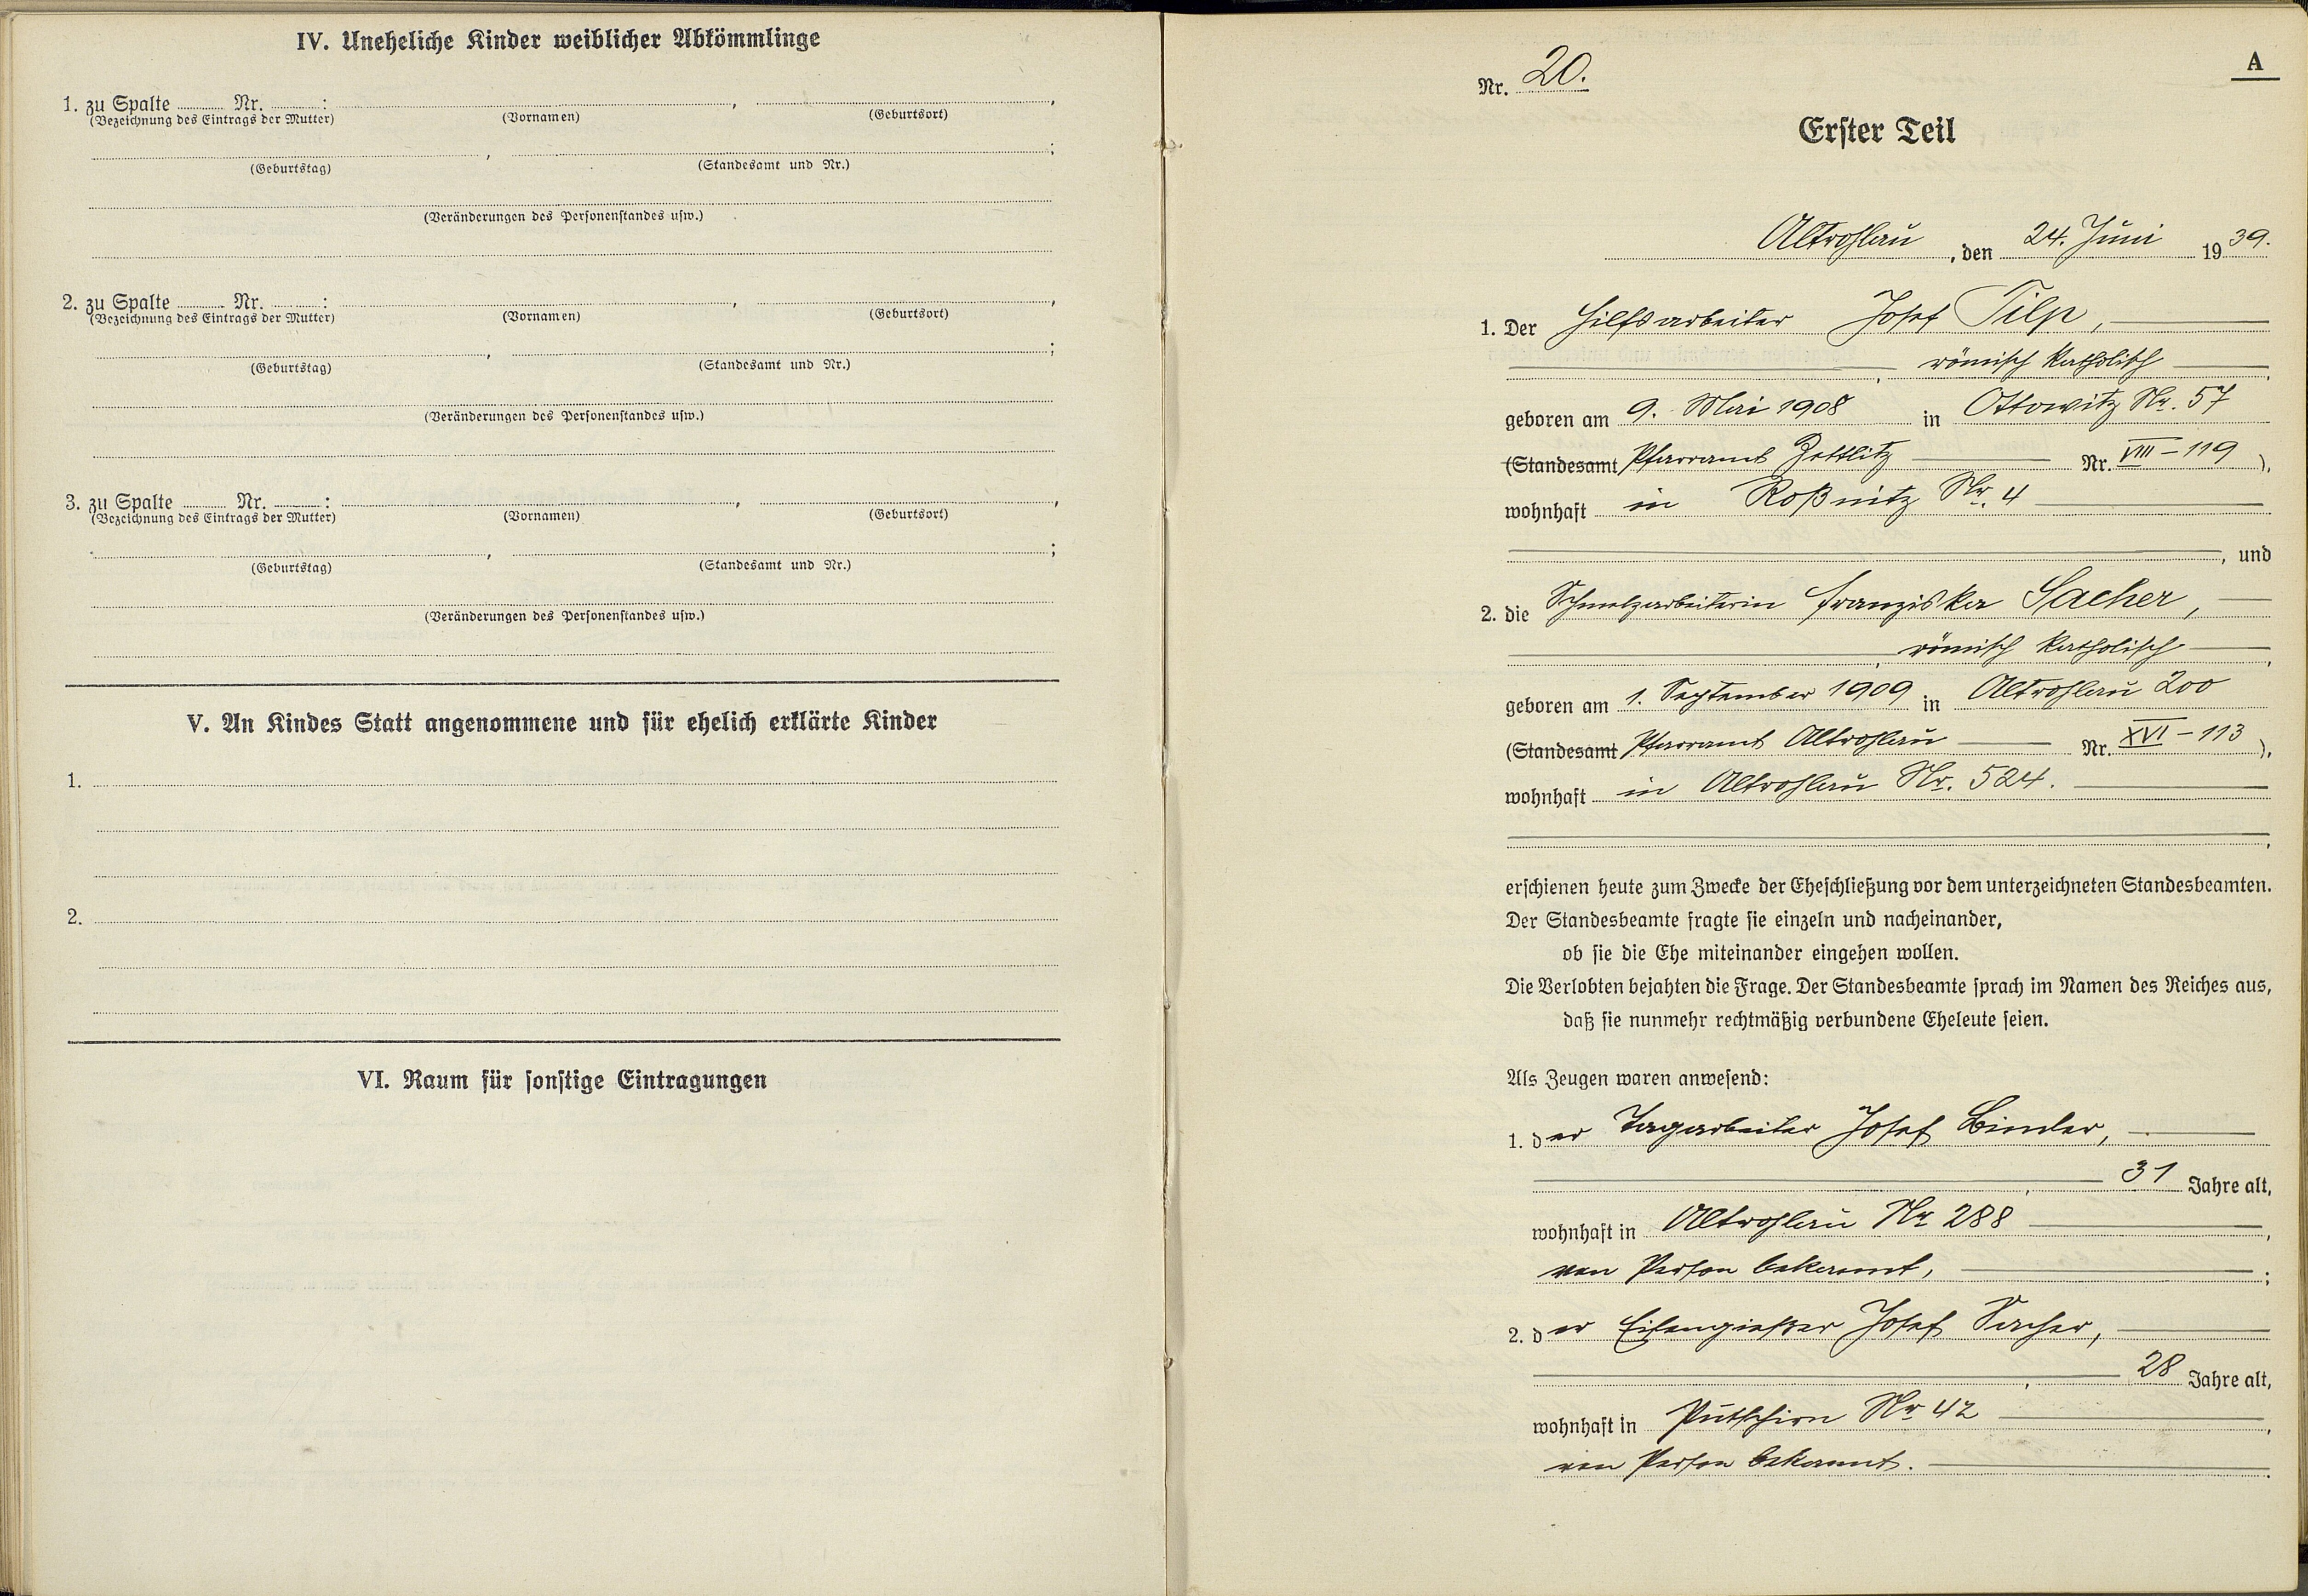 IV. Uneheliche Kinder weiblicher Abkömmlinge
1. zu Spalte ........ Nr. ........ : ........ , ........ ,
(Bezeichnung des Eintrags der Mutter) (Vornamen) (Geburtsort)
........ , ........ ;
(Geburtstag) (Standesamt und Nr.)
(Veränderungen des Personenstandes usw.)
2. zu Spalte ........ Nr. ........ : ........ , ........ ,
(Bezeichnung des Eintrags der Mutter) (Vornamen) (Geburtsort)
........ , ........ ;
(Geburtstag) (Standesamt und Nr.)
(Veränderungen des Personenstandes usw.)
3. zu Spalte ........ Nr. ........ : ........ , ........ ,
(Bezeichnung des Eintrags der Mutter) (Vornamen) (Geburtsort)
........ , ........ ;
(Geburtstag) (Standesamt und Nr.)
(Veränderungen des Personenstandes usw.)
V. An Kindes Statt angenommene und für ehelich erklärte Kinder
1.
2.
VI. Raum für sonstige Eintragungen
A
Nr. 20.
Erster Teil
Altrohlau, den 24. Juni 1939.
1. Der Hilfsarbeiter Josef Tilp,
, römisch katholisch,
geboren am 9. Mai 1908 in Ottowitz Nr. 57
(Standesamt Pfarramt Zettlitz Nr. VIII – 119),
wohnhaft in Roßnitz Nr. 4
, und
2. die Schmelzarbeiterin Franziska Sacher,
, römisch katholisch,
geboren am 1. September 1909 in Altrohlau 200
(Standesamt Pfarramt Altrohlau Nr. XVI – 113),
wohnhaft in Altrohlau Nr. 524.
,
erschienen heute zum Zwecke der Eheschließung vor dem unterzeichneten Standesbeamten.
Der Standesbeamte fragte sie einzeln und nacheinander,
ob sie die Ehe miteinander eingehen wollen.
Die Verlobten bejahten die Frage. Der Standesbeamte sprach im Namen des Reiches aus,
daß sie nunmehr rechtmäßig verbundene Eheleute seien.
Als Zeugen waren anwesend:
1. der Tagarbeiter Josef Binder,
, 31 Jahre alt,
wohnhaft in Altrohlau Nr 288,
von Person bekannt, ;
2. der Eisengießer Josef Sacher,
, 28 Jahre alt,
wohnhaft in Putschirn Nr 42,
von Person bekannt.